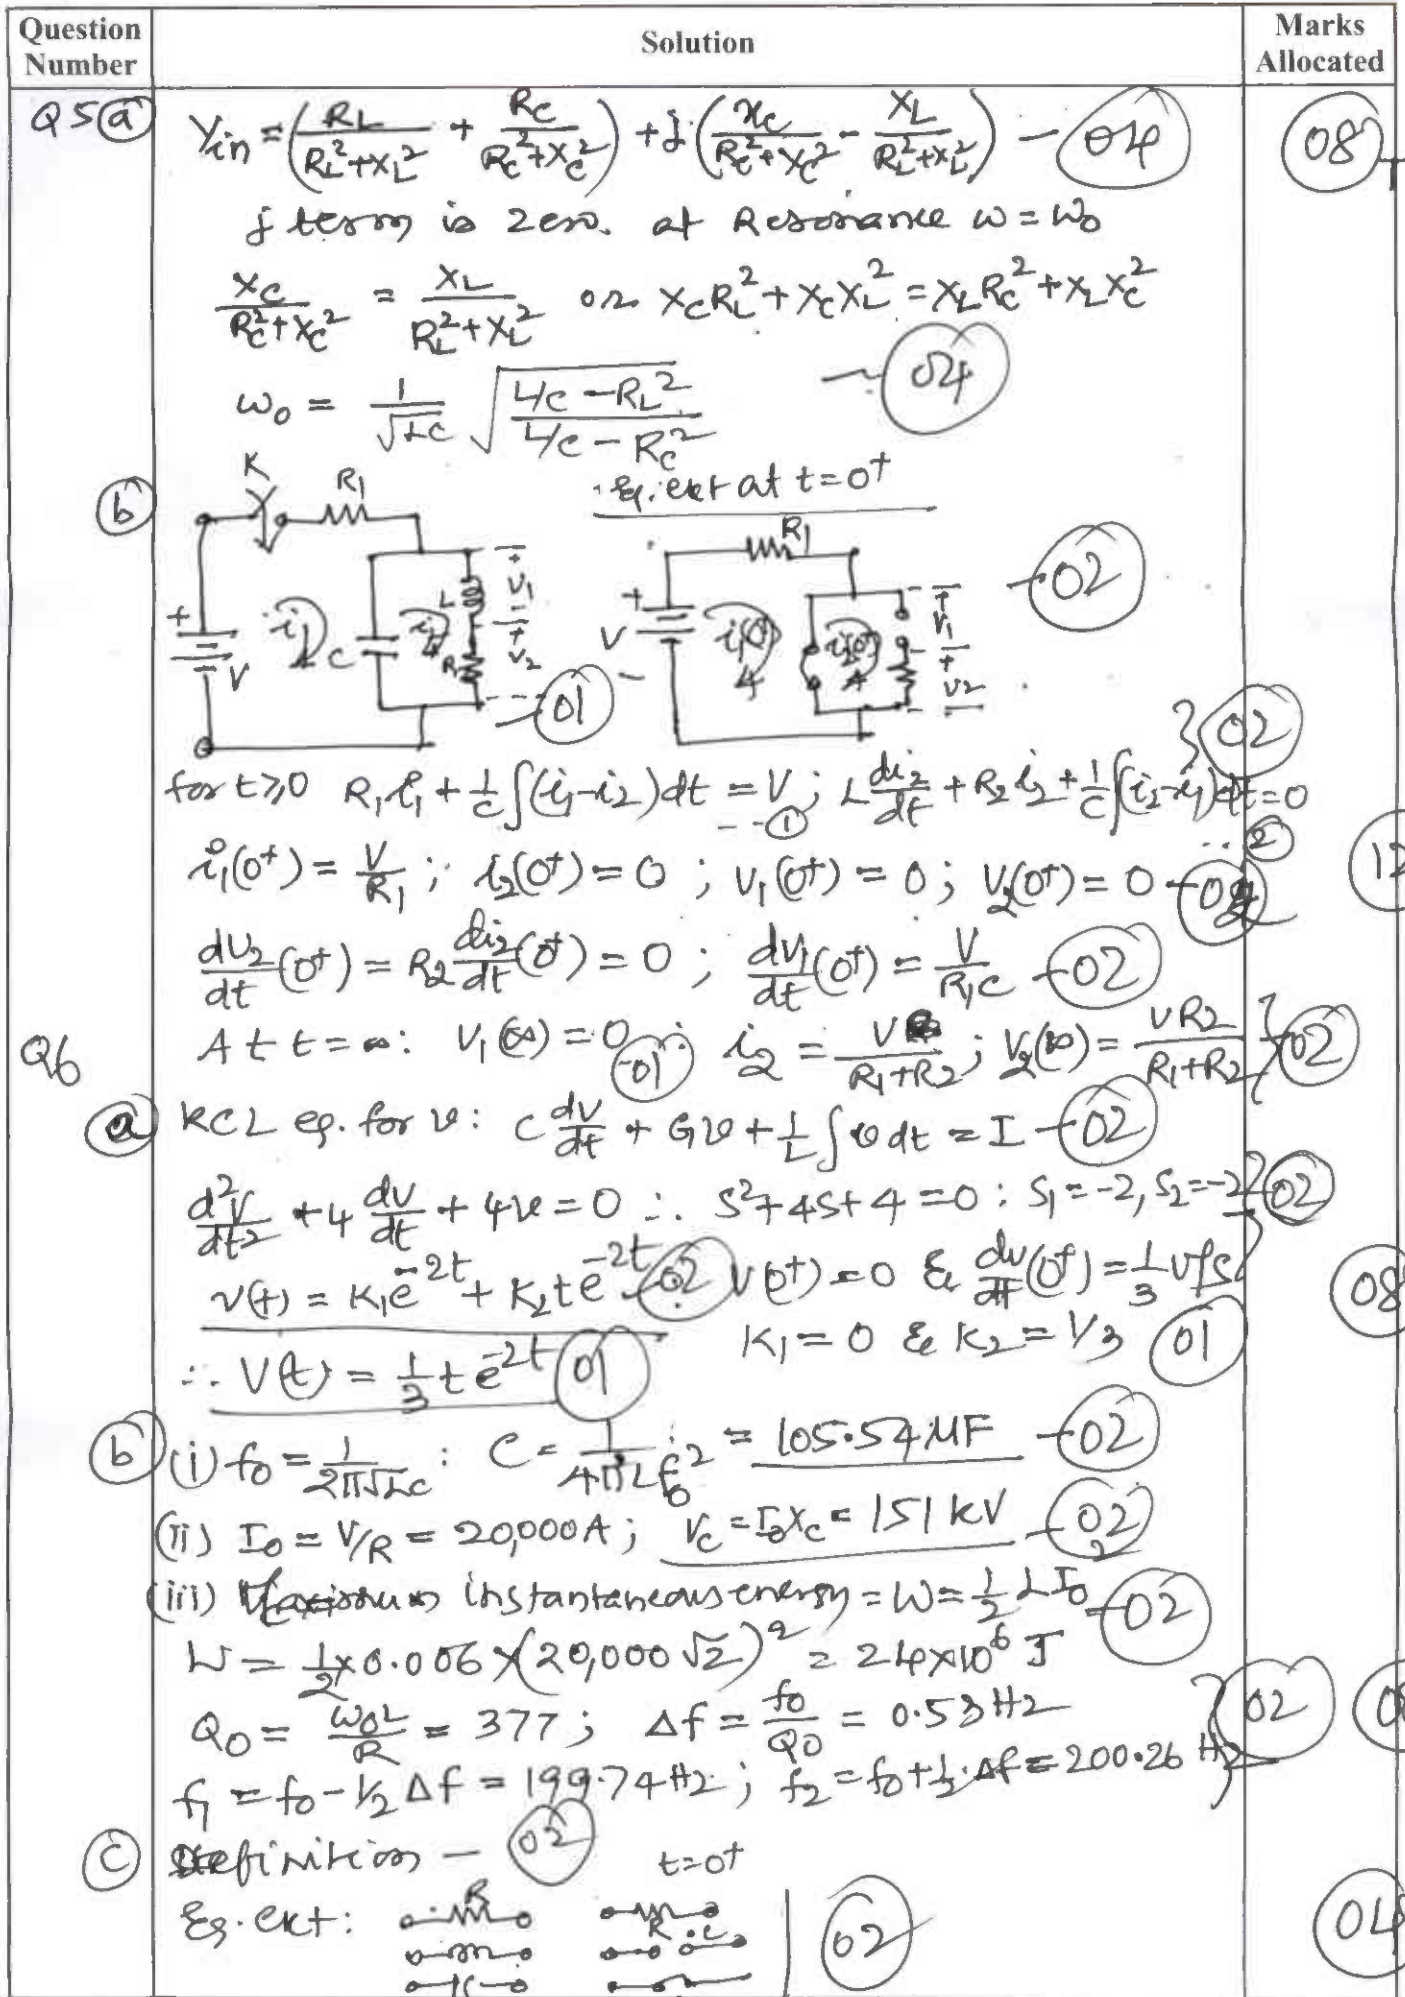 Question Number | Solution | Marks Allocated
Q5 (a) Yin = (RL/(RL²+XL²) + RC/(RC²+XC²)) + j(xC/(RC²+XC²) - XL/(RL²+XL²)) — (04) (08)
j term is zero. at Resonance ω = ω0
XC/(RC²+XC²) = XL/(RL²+XL²) or XC RL² + XC XL² = XL RC² + XL XC²
ω0 = 1/√LC √((L/C - RL²)/(L/C - RC²)) — (04)
(b) K R1 + V i1 C i2 L R2 + V1 - + V2 - (01)
Eq. ckt at t=0+
R1 + V - i1(0+) i2(0+) + V1 - + V2 - — (02)
for t≥0 R1 i1 + 1/C ∫(i1-i2)dt = V --(1) ; L di2/dt + R2 i2 + 1/C ∫(i2-i1)dt = 0 ..(2) } (02)
i1(0+) = V/R1 ; i2(0+) = 0 ; V1(0+) = 0 ; V2(0+) = 0 — (12)
dV2/dt (0+) = R2 di2/dt (0+) = 0 ; dV1/dt (0+) = V/R1C — (02)
At t = ∞: V1(∞) = 0 (01) : i2 = V/(R1+R2) ; V2(∞) = VR2/(R1+R2) } (02)
Q6
(a) KCL eq. for v: C dv/dt + Gv + 1/L ∫ v dt = I — (02)
d²V/dt² + 4 dv/dt + 4v = 0 ∴ S²+4S+4 = 0 : S1 = -2, S2 = -2 } (02)
v(t) = K1 e^-2t + K2 t e^-2t — 02 V(0+) = 0 & dv/dt (0+) = 1/3 v/s (08)
K1 = 0 & K2 = 1/3 (01)
∴ V(t) = 1/3 t e^-2t (01)
(b) (i) f0 = 1/2π√LC : C = 1/4π²L f0² = 105.54 MF — (02)
(ii) I0 = V/R = 20,000A ; VC = I0 XC = 151 kV — (02)
(iii) Maximum instantaneous energy = W = 1/2 L I0² — (02)
W = 1/2 × 0.006 × (20,000 √2)² = 2.4×10⁶ J
Q0 = ω0L/R = 377 ; Δf = f0/Q0 = 0.53 Hz } (02)
f1 = f0 - 1/2 Δf = 199.74 Hz ; f2 = f0 + 1/2 . Δf = 200.26 Hz
(c) Definition — (02) t=0+
Eq. ckt: R R o.c | (02) (04)